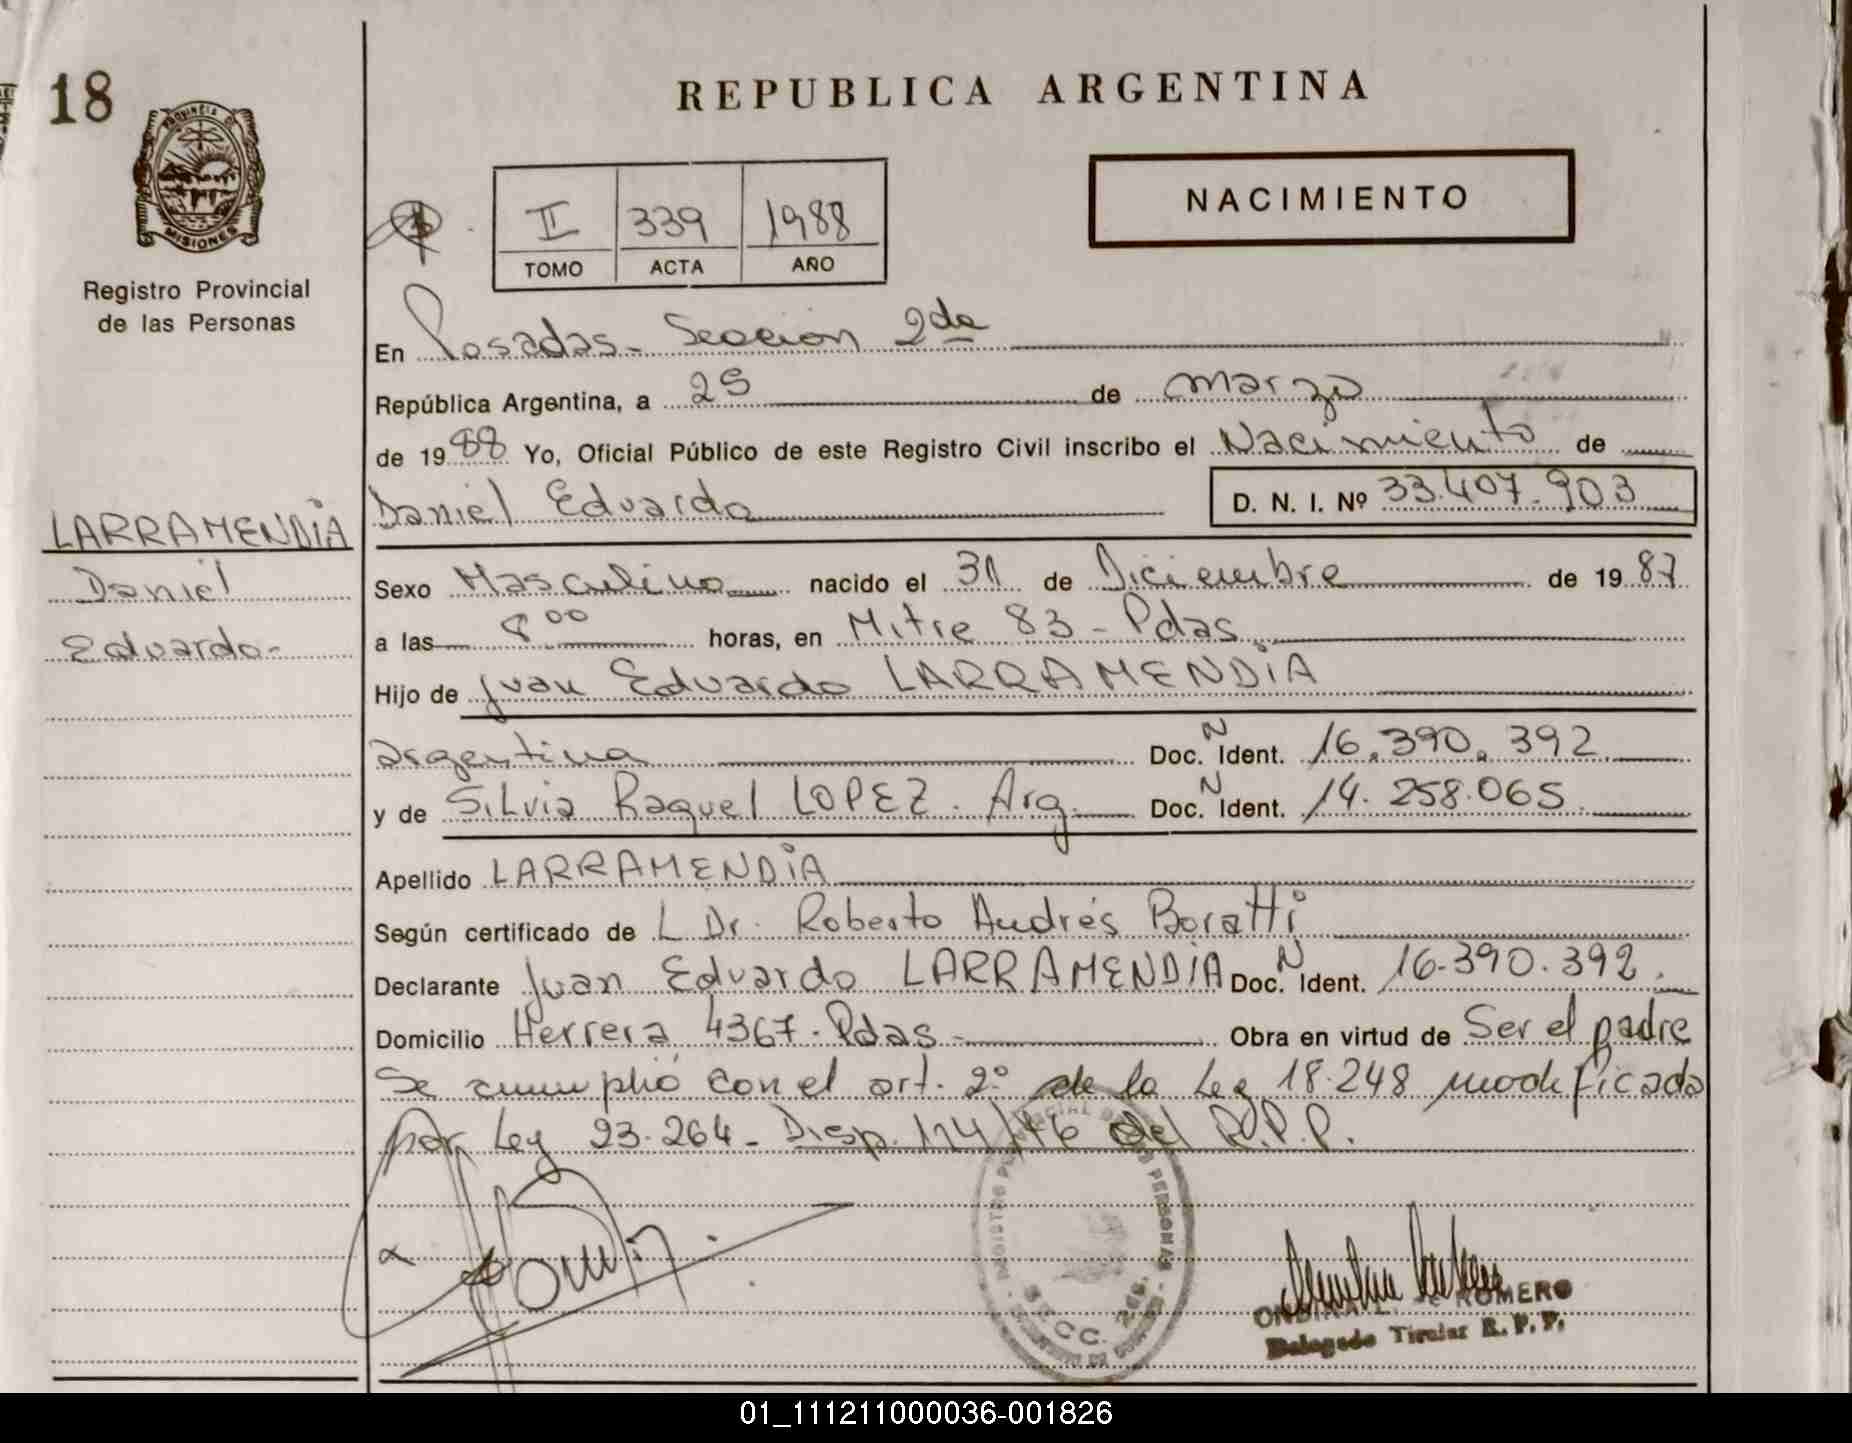 18
REPUBLICA ARGENTINA
PROVINCIA D
MISIONES
Registro Provincial
de las Personas
II 339 1988
TOMO ACTA AÑO
NACIMIENTO
En Posadas - Sección 2da
República Argentina, a 25 de marzo
de 1988 Yo, Oficial Público de este Registro Civil inscribo el Nacimiento de
Daniel Eduardo D. N. I. Nº 33.407.903
LARRAMENDIA
Daniel
Eduardo-
Sexo Masculino nacido el 31 de Diciembre de 1987
a las 8 00 horas, en Mitre 83 - Pdas.
Hijo de Juan Eduardo LARRAMENDIA
argentina Doc. N Ident. 16.390.392
y de Silvia Raquel LOPEZ. Arg. Doc. N Ident. 14.258.065
Apellido LARRAMENDIA
Según certificado de L Dr. Roberto Andrés Boratti
Declarante Juan Eduardo LARRAMENDIA Doc. N Ident. 16.390.392.
Domicilio Herrera 4367 - Pdas - Obra en virtud de Ser el padre
Se cumplió con el art. 2º de la Ley 18.248 modificada
por Ley 23.264 - Disp. 114/ del R.P.P.
SECC. 2da.
ROMERO
Delegado Titular R. P. P.
01_111211000036-001826